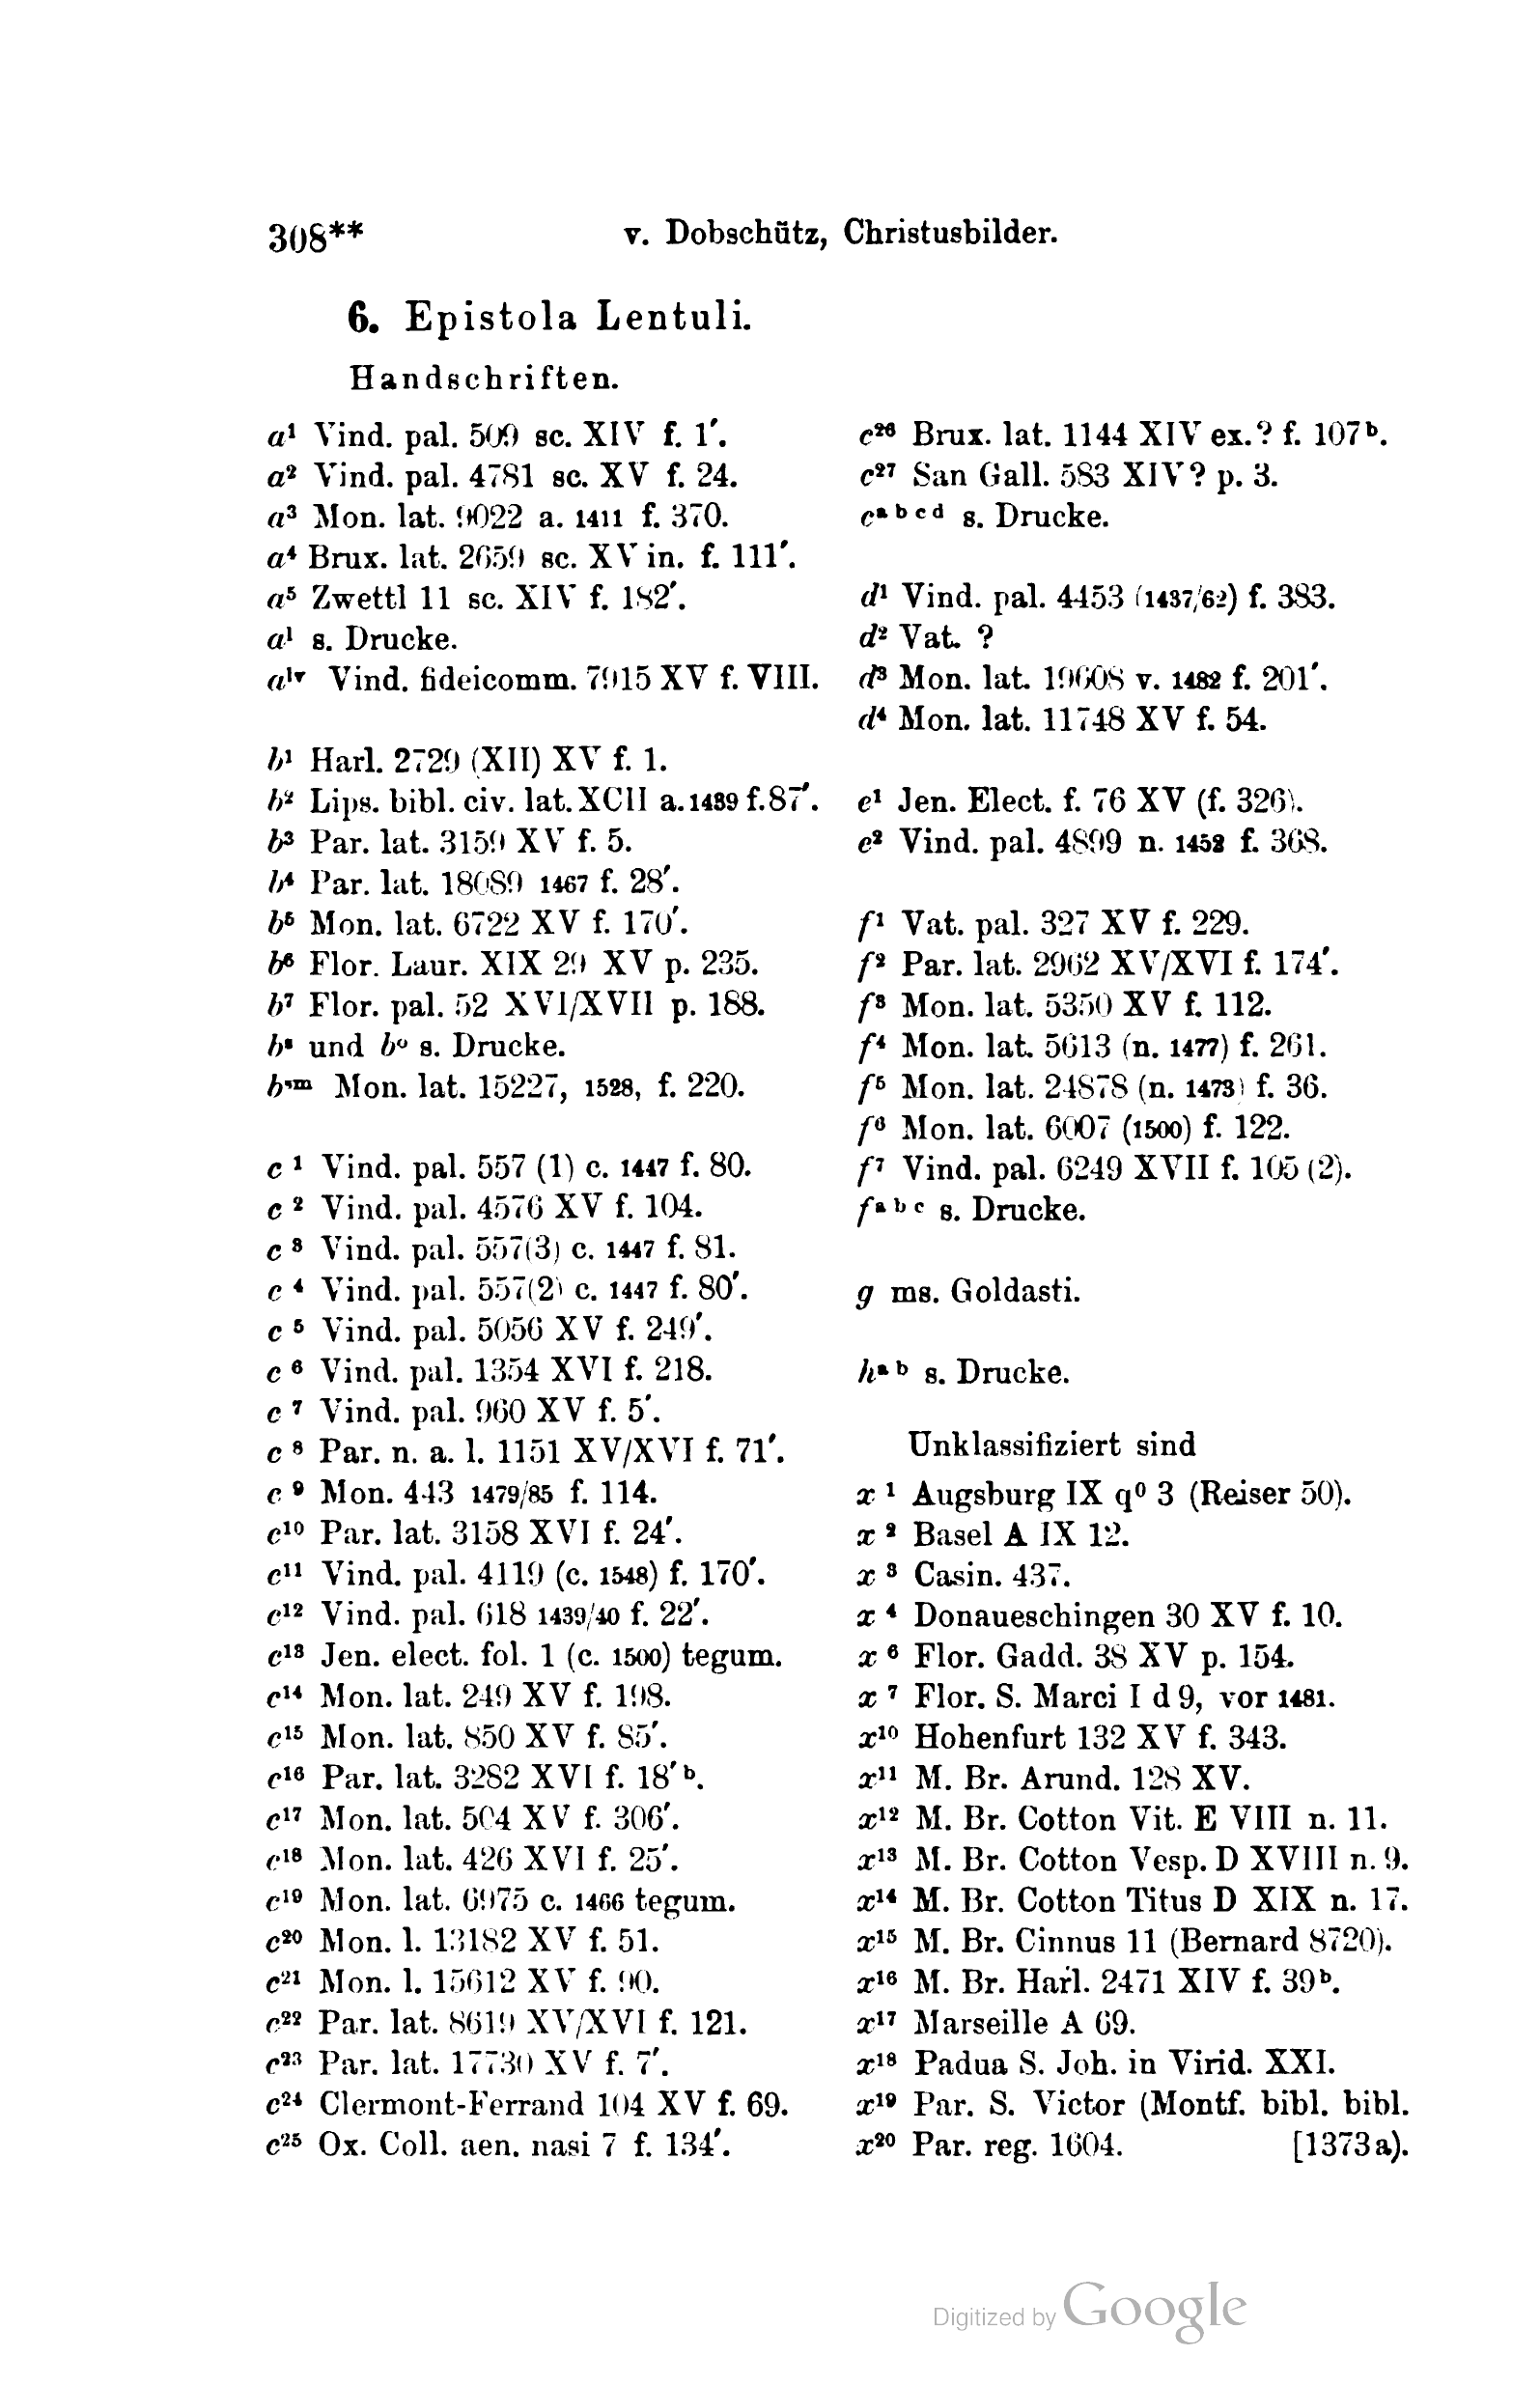 308**
v. Dobschütz, Christusbilder.
6. Epistola Lentuli.
Handschriften.
a¹ Vind. pal. 509 sc. XIV f. 1′.
a² Vind. pal. 4781 sc. XV f. 24.
a³ Mon. lat. 9022 a. 1411 f. 370.
a⁴ Brux. lat. 2659 sc. XV in. f. 111′.
a⁵ Zwettl 11 sc. XIV f. 182′.
aˡ s. Drucke.
aˡᵛ Vind. fideicomm. 7915 XV f. VIII.
b¹ Harl. 2729 (XII) XV f. 1.
b² Lips. bibl. civ. lat. XCII a. 1489 f. 87′.
b³ Par. lat. 3159 XV f. 5.
b⁴ Par. lat. 18089 1467 f. 28′.
b⁵ Mon. lat. 6722 XV f. 170′.
b⁶ Flor. Laur. XIX 29 XV p. 235.
b⁷ Flor. pal. 52 XVI/XVII p. 188.
bˢ und bᵒ s. Drucke.
bˢᵐ Mon. lat. 15227, 1528, f. 220.
c¹ Vind. pal. 557 (1) c. 1447 f. 80.
c² Vind. pal. 4576 XV f. 104.
c³ Vind. pal. 557(3) c. 1447 f. 81.
c⁴ Vind. pal. 557(2) c. 1447 f. 80′.
c⁵ Vind. pal. 5056 XV f. 249′.
c⁶ Vind. pal. 1354 XVI f. 218.
c⁷ Vind. pal. 960 XV f. 5′.
c⁸ Par. n. a. l. 1151 XV/XVI f. 71′.
c⁹ Mon. 443 1479/85 f. 114.
c¹⁰ Par. lat. 3158 XVI f. 24′.
c¹¹ Vind. pal. 4119 (c. 1548) f. 170′.
c¹² Vind. pal. 618 1439/40 f. 22′.
c¹³ Jen. elect. fol. 1 (c. 1500) tegum.
c¹⁴ Mon. lat. 249 XV f. 198.
c¹⁵ Mon. lat. 850 XV f. 85′.
c¹⁶ Par. lat. 3282 XVI f. 18′ᵇ.
c¹⁷ Mon. lat. 504 XV f. 306′.
c¹⁸ Mon. lat. 426 XVI f. 25′.
c¹⁹ Mon. lat. 6975 c. 1466 tegum.
c²⁰ Mon. l. 13182 XV f. 51.
c²¹ Mon. l. 15612 XV f. 90.
c²² Par. lat. 8619 XV/XVI f. 121.
c²³ Par. lat. 17730 XV f. 7′.
c²⁴ Clermont-Ferrand 104 XV f. 69.
c²⁵ Ox. Coll. aen. nasi 7 f. 134′.
c²⁶ Brux. lat. 1144 XIV ex.? f. 107ᵇ.
c²⁷ San Gall. 583 XIV? p. 3.
cᵃ ᵇ ᶜ ᵈ s. Drucke.
d¹ Vind. pal. 4453 (1437/62) f. 383.
d² Vat. ?
d³ Mon. lat. 19608 v. 1482 f. 201′.
d⁴ Mon. lat. 11748 XV f. 54.
e¹ Jen. Elect. f. 76 XV (f. 326).
e² Vind. pal. 4899 n. 1452 f. 368.
f¹ Vat. pal. 327 XV f. 229.
f² Par. lat. 2962 XV/XVI f. 174′.
f³ Mon. lat. 5350 XV f. 112.
f⁴ Mon. lat. 5613 (n. 1477) f. 261.
f⁵ Mon. lat. 24878 (n. 1473) f. 36.
f⁶ Mon. lat. 6007 (1500) f. 122.
f⁷ Vind. pal. 6249 XVII f. 105 (2).
fᵃ ᵇ ᶜ s. Drucke.
g ms. Goldasti.
hᵃ ᵇ s. Drucke.
Unklassifiziert sind
x¹ Augsburg IX q⁰ 3 (Reiser 50).
x² Basel A IX 12.
x³ Casin. 437.
x⁴ Donaueschingen 30 XV f. 10.
x⁶ Flor. Gadd. 38 XV p. 154.
x⁷ Flor. S. Marci I d 9, vor 1481.
x¹⁰ Hohenfurt 132 XV f. 343.
x¹¹ M. Br. Arund. 128 XV.
x¹² M. Br. Cotton Vit. E VIII n. 11.
x¹³ M. Br. Cotton Vesp. D XVIII n. 9.
x¹⁴ M. Br. Cotton Titus D XIX n. 17.
x¹⁵ M. Br. Cinnus 11 (Bernard 8720).
x¹⁶ M. Br. Harl. 2471 XIV f. 39ᵇ.
x¹⁷ Marseille A 69.
x¹⁸ Padua S. Joh. in Virid. XXI.
x¹⁹ Par. S. Victor (Montf. bibl. bibl.
x²⁰ Par. reg. 1604. [1373 a).
Digitized by Google